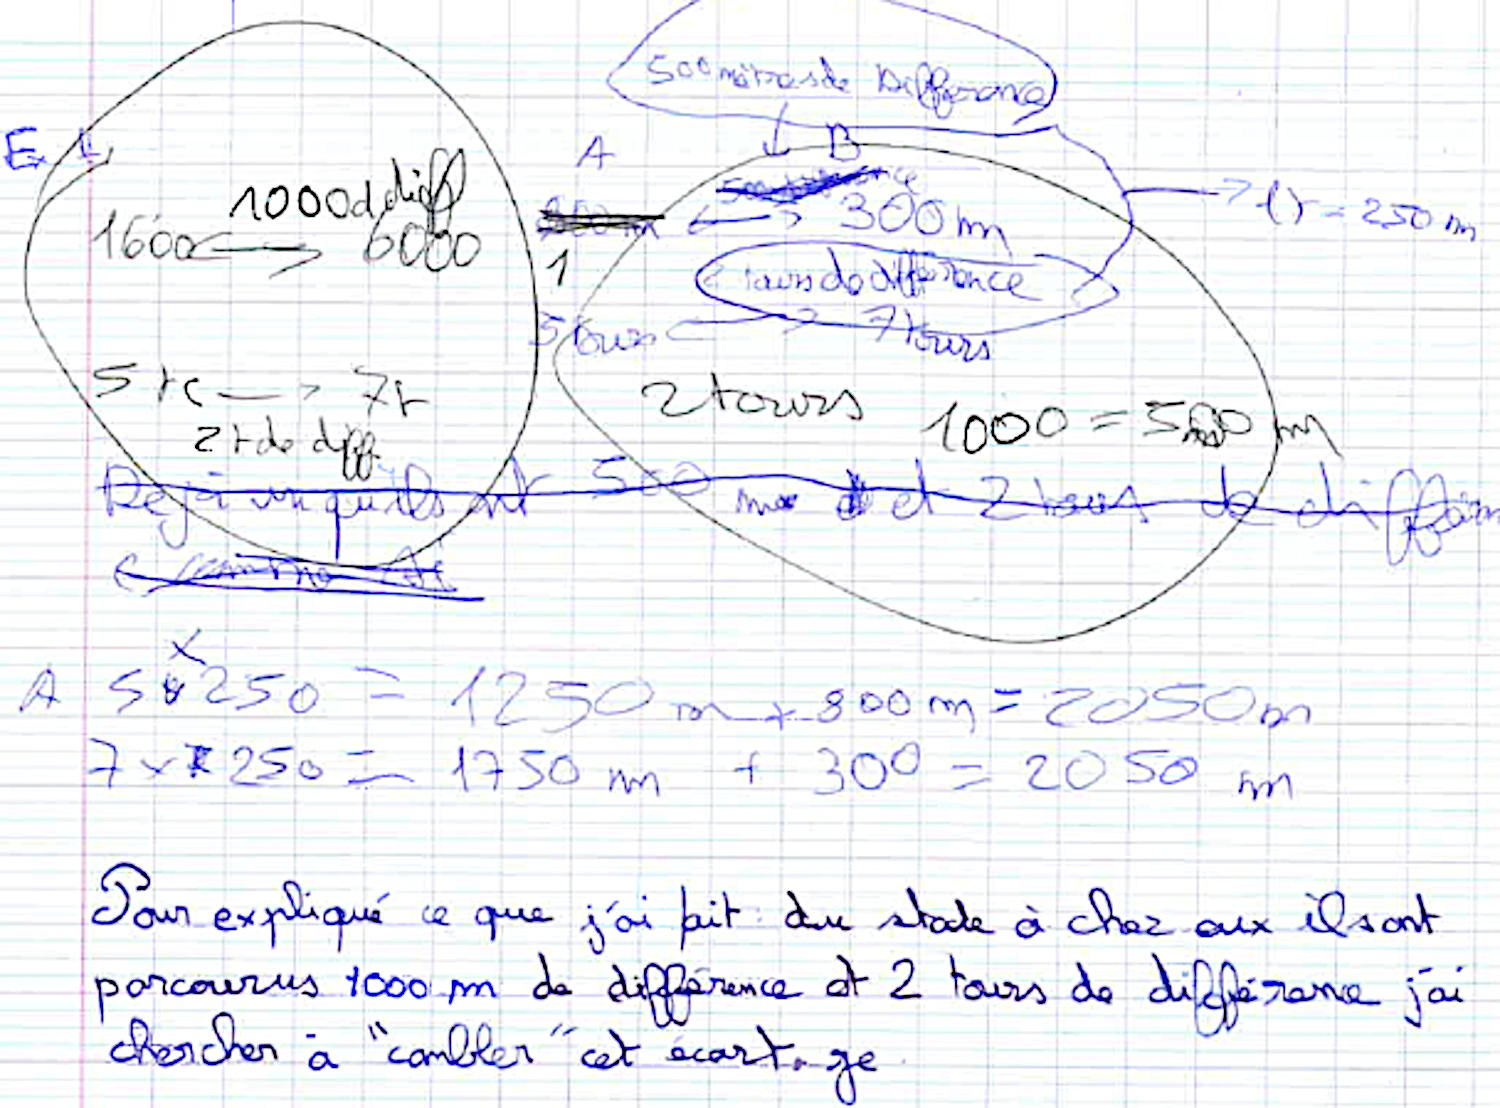 500 mètres de Différence
Ex 1
A B
1000 d diff
1600 6000
300 m
1) = 250 m
1
tours de différence
5 tours 7 tours
5 t 7t
2 t de diff
2 tours 1000 = 500 m
Déjà vu qu'ils ont 500 m et 2 tours de différen
A 5 x 250 = 1250 m + 800 m = 2050 m
7 x 250 = 1750 m + 300 = 2050 m
Pour expliqué ce que j'ai fait du stade à chez eux ils ont
parcourus 1000 m de différence et 2 tours de différence j'ai
chercher à "combler" cet écart. ge